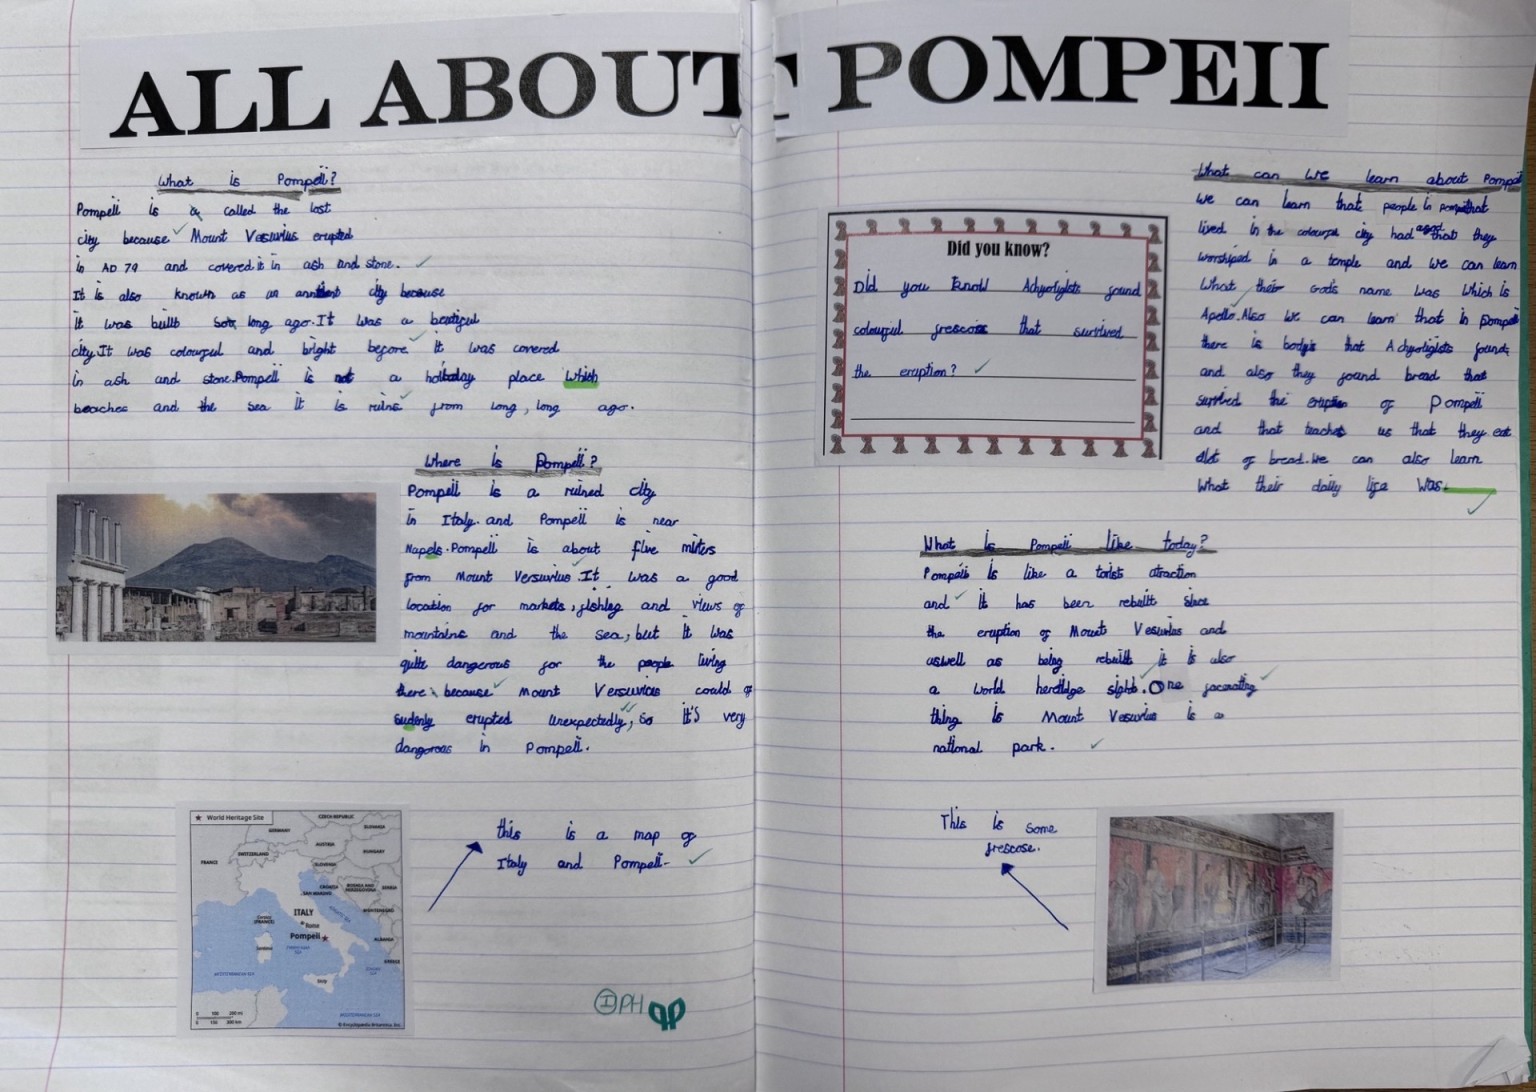 ALL ABOUT POMPEII
What is Pompeii?
Pompeii is a called the lost
city because Mount Vesuvius erupted
in AD 79 and covered it in ash and stone.
It is also known as an city because
it was built long ago. It was a beatiful
city. It was colourful and bright before it was covered
in ash and stone. Pompeii is not a holiday place which
beaches and the sea it is ruins from long, long ago.
Where is Pompeii?
Pompeii is a ruined city
in Italy. and Pompeii is near
Napels. Pompeii is about five miters
from Mount Versuvius. It was a good
location for markets, fishing and views of
mountains and the sea, but it was
quite dangerous for the people living
there because Mount Versuvius could of
sudenly erupted unexpectedly, so it's very
dangorous in Pompeii.
★ World Heritage Site
CZECH REPUBLIC
GERMANY
SLOVAKIA
AUSTRIA
FRANCE
SWITZERLAND
HUNGARY
SLOVENIA
CROATIA
SAN MARINO
BOSNIA AND HERZEGOVINA
SERBIA
MONTENEGRO
ITALY
Corsica (FRANCE)
Rome
Pompeii
ALBANIA
GREECE
Sardinia
Sicily
MEDITERRANEAN SEA
MEDITERRANEAN SEA
0 100 200 mi
0 150 300 km
© Encyclopædia Britannica, Inc.
this is a map of
Italy and Pompeii.
I PH
Did you know?
Did you know Achyoligists found
colourful frescose that survived
the eruption?
What can we learn about Pompeii
we can learn that people in that
lived in the colourful city had that they
worshiped in a temple and we can learn
What their God's name was which is
Apollo. Also we can learn that in Pompeii
there is body's that Achyoligists found,
and also they found bread that
survived the eruption of Pompeii
and that teaches us that they eat
alot of bread. We can also learn
What their daily life was.
What is Pompeii like today?
Pompeii is like a torist atraction
and it has been rebuilt since
the eruption of Mount Vesuvius and
aswell as being rebuilt it is also
a world heretidge sight. One facenating
thing is Mount Vesuvius is a
national park.
This is some
frescose.